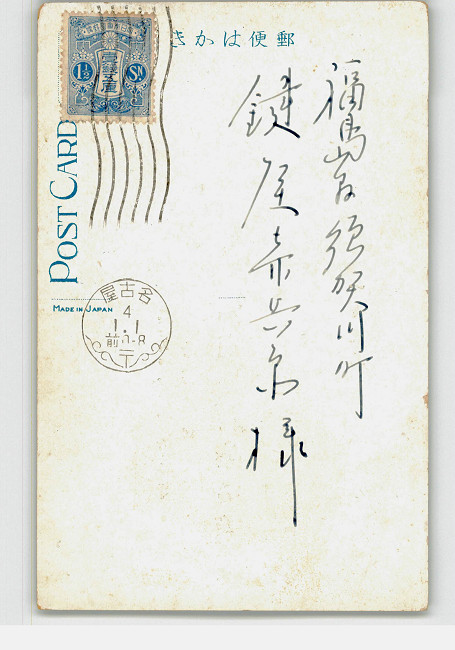 郵便はかき
POST CARD
MADE IN JAPAN
1½ Sn
名古屋
4
1.1
前0-8
福島県須賀川町
鍵屋
様